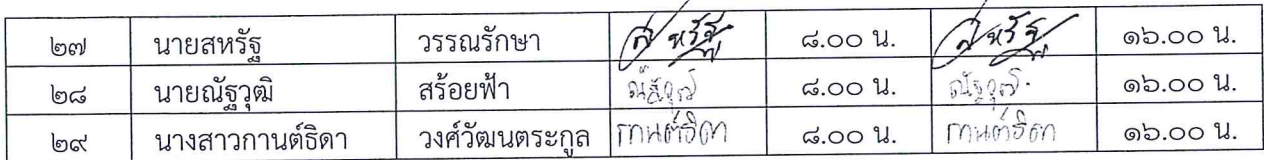 ๒๗ นายสหรัฐ วรรณรักษา สหรัฐ ๘.๐๐ น. สหรัฐ ๑๖.๐๐ น.
๒๘ นายณัฐวุฒิ สร้อยฟ้า ณัฐวุฒิ ๘.๐๐ น. ณัฐวุฒิ ๑๖.๐๐ น.
๒๙ นางสาวกานต์ธิดา วงศ์วัฒนตระกูล กานต์ธิดา ๘.๐๐ น. กานต์ธิดา ๑๖.๐๐ น.